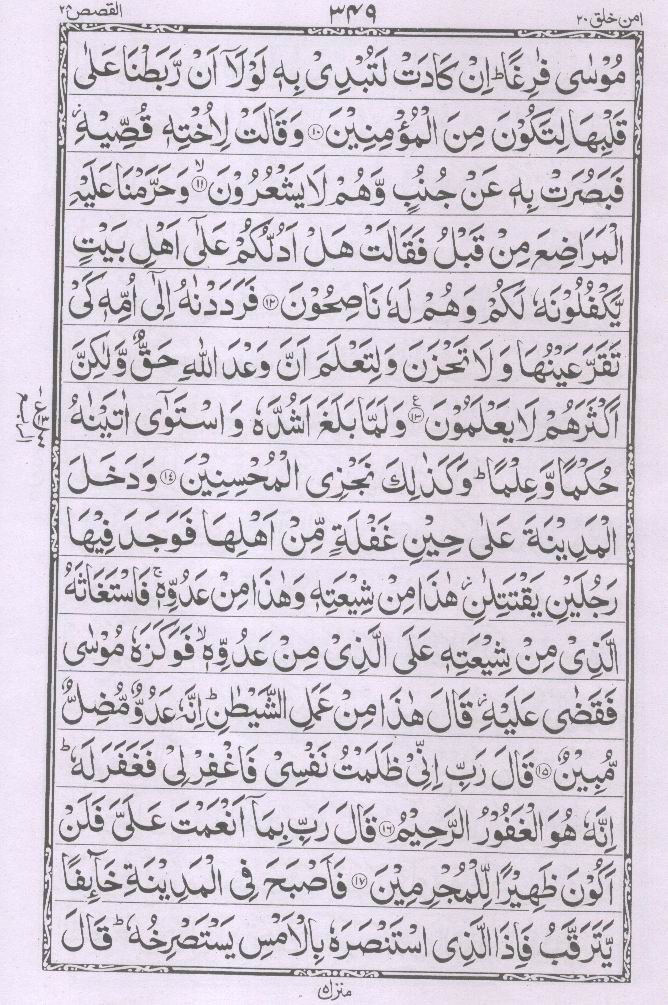 امن خلق ۲۰ ۳۴۹ القصص ۲۸
مُوْسٰى فٰرِغًا ؕ اِنْ كَادَتْ لَتُبْدِىْ بِهٖ لَوْلَاۤ اَنْ رَّبَطْنَا عَلٰى
قَلْبِهَا لِتَكُوْنَ مِنَ الْمُؤْمِنِيْنَ ⑩ وَقَالَتْ لِاُخْتِهٖ قُصِّيْهِ ز
فَبَصُرَتْ بِهٖ عَنْ جُنُبٍ وَّهُمْ لَا يَشْعُرُوْنَ ۙ⑪ وَحَرَّمْنَا عَلَيْهِ
الْمَرَاضِعَ مِنْ قَبْلُ فَقَالَتْ هَلْ اَدُلُّكُمْ عَلٰٓى اَهْلِ بَيْتٍ
يَّكْفُلُوْنَهٗ لَكُمْ وَهُمْ لَهٗ نَاصِحُوْنَ ⑫ فَرَدَدْنٰهُ اِلٰٓى اُمِّهٖ كَىْ
تَقَرَّ عَيْنُهَا وَلَا تَحْزَنَ وَلِتَعْلَمَ اَنَّ وَعْدَ اللّٰهِ حَقٌّ وَّلٰكِنَّ
اَكْثَرَهُمْ لَا يَعْلَمُوْنَ ⑬ ع وَلَمَّا بَلَغَ اَشُدَّهٗ وَاسْتَوٰٓى اٰتَيْنٰهُ
حُكْمًا وَّعِلْمًا ؕ وَكَذٰلِكَ نَجْزِى الْمُحْسِنِيْنَ ⑭ وَدَخَلَ
الْمَدِيْنَةَ عَلٰى حِيْنِ غَفْلَةٍ مِّنْ اَهْلِهَا فَوَجَدَ فِيْهَا
رَجُلَيْنِ يَقْتَتِلٰنِ ز هٰذَا مِنْ شِيْعَتِهٖ وَهٰذَا مِنْ عَدُوِّهٖ ۚ فَاسْتَغَاثَهُ
الَّذِىْ مِنْ شِيْعَتِهٖ عَلَى الَّذِىْ مِنْ عَدُوِّهٖ ۙ فَوَكَزَهٗ مُوْسٰى
فَقَضٰى عَلَيْهِ ز قَالَ هٰذَا مِنْ عَمَلِ الشَّيْطٰنِ ؕ اِنَّهٗ عَدُوٌّ مُّضِلٌّ
مُّبِيْنٌ ⑮ قَالَ رَبِّ اِنِّىْ ظَلَمْتُ نَفْسِىْ فَاغْفِرْ لِىْ فَغَفَرَ لَهٗ ؕ
اِنَّهٗ هُوَ الْغَفُوْرُ الرَّحِيْمُ ⑯ قَالَ رَبِّ بِمَاۤ اَنْعَمْتَ عَلَىَّ فَلَنْ
اَكُوْنَ ظَهِيْرًا لِّلْمُجْرِمِيْنَ ⑰ فَاَصْبَحَ فِى الْمَدِيْنَةِ خَآئِفًا
يَّتَرَقَّبُ فَاِذَا الَّذِى اسْتَنْصَرَهٗ بِالْاَمْسِ يَسْتَصْرِخُهٗ ؕ قَالَ
منزل ۵